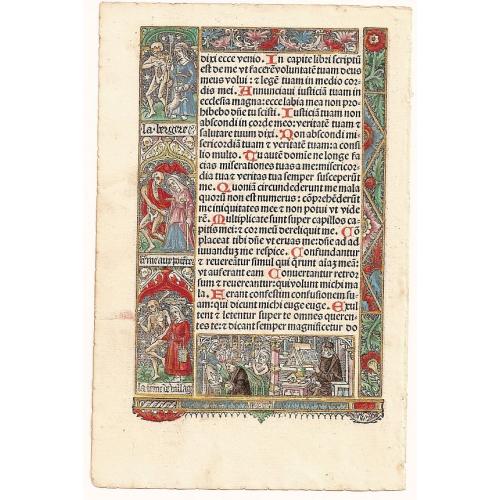 dixi ecce venio. In capite libri scriptũ
est de me vt facerẽ voluntatẽ tuam deus
meus volui: ⁊ legẽ tuam in medio cor-
dis mei. Annunciaui iusticiã tuam in
ecclesia magna: ecce labia mea non pro-
hibebo dñe tu scisti. Iusticiã tuam non
abscondi in corde meo: veritatẽ tuam ⁊
salutare tuum dixi. Non abscondi mi-
sericordiã tuam ⁊ veritatẽ tuam: a consi
lio multo. Tu autẽ domĩe ne longe fa
cias miserationes tuas a me: misericor-
dia tua ⁊ veritas tua semper susceperũt
me. Quoniã circundederunt me mala
quorũ non est numerus: cõprehẽderũt
me iniquitates mee ⁊ non potui vt vide
rẽ. Multiplicate sunt super capillos ca-
pitis mei: ⁊ cor meũ dereliquit me. Cõ
placeat tibi dñe vt eruas me: dñe ad ad
iuvandũ me respice. Confundantur
⁊ reuereãtur simul qui q̃runt aĩaȝ meã:
vt auferant eam Conuertantur retror
sum ⁊ reuereantur: qui volunt michi ma
la. Ferant confestim confusionem su-
am: qui dicunt michi euge euge. Exul
tent ⁊ letentur super te omnes queren-
tes te: ⁊ dicant semper magnificetur do
la bergere
la femme